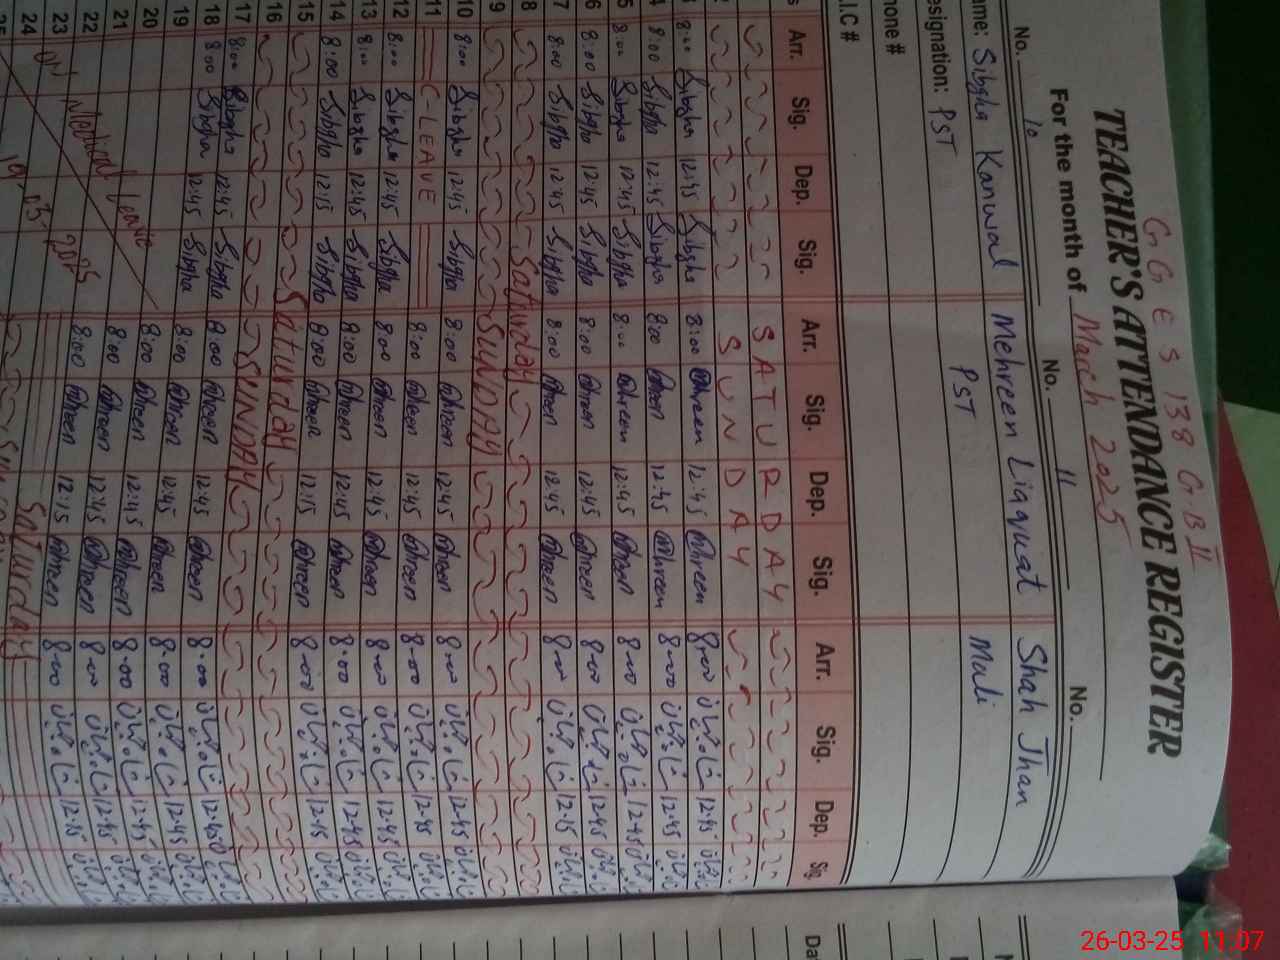 G.G E S 138 G.B II
TEACHER'S ATTENDANCE REGISTER
For the month of March 2025
No. 10 No. 11 No.
ame: Sibgha Kanwal Mehreen Liaquat Shah Jhan
esignation: PST PST Mali
hone #
.I.C #
Arr. Sig. Dep. Sig. Arr. Sig. Dep. Sig. Arr. Sig. Dep. Sig
SATURDAY
SUNDAY
3 8:00 Sibgha 12:45 Sibgha 8:00 Mehreen 12:45 Mehreen 8-00 شاہ جہاں 12-45 شاہ جہاں
4 8:00 Sibgha 12:45 Sibgha 8:00 Mehreen 12:45 Mehreen 8-00 شاہ جہاں 12-45 شاہ جہاں
5 8:00 Sibgha 12:45 Sibgha 8:00 Mehreen 12:45 Mehreen 8-00 شاہ جہاں 12-45 شاہ جہاں
6 8:00 Sibgha 12:45 Sibgha 8:00 Mehreen 12:45 Mehreen 8-00 شاہ جہاں 12-45 شاہ جہاں
7 8:00 Sibgha 12:45 Sibgha 8:00 Mehreen 12:45 Mehreen 8-00 شاہ جہاں 12-15 شاہ جہاں
8 Saturday
9 SUNDAY
10 8:00 Sibgha 12:45 Sibgha 8:00 Mehreen 12:45 Mehreen 8-00 شاہ جہاں 12-45 شاہ جہاں
11 C-LEAVE 8:00 Mehreen 12:45 Mehreen 8-00 شاہ جہاں 12-45 شاہ جہاں
12 8:00 Sibgha 12:45 Sibgha 8:00 Mehreen 12:45 Mehreen 8-00 شاہ جہاں 12-45 شاہ جہاں
13 8:00 Sibgha 12:45 Sibgha 8:00 Mehreen 12:45 Mehreen 8-00 شاہ جہاں 12-45 شاہ جہاں
14 8:00 Sibgha 12:15 Sibgha 8:00 Mehreen 12:15 Mehreen 8-00 شاہ جہاں 12-15 شاہ جہاں
15 Saturday
16 SUNDAY
17 8:00 Sibgha 12:45 Sibgha 8:00 Mehreen 12:45 Mehreen 8-00 شاہ جہاں 12-45 شاہ جہاں
18 8 00 Sibgha 12:45 Sibgha 8:00 Mehreen 12:45 Mehreen 8-00 شاہ جہاں 12-45 شاہ جہاں
19 8:00 Mehreen 12:45 Mehreen 8-00 شاہ جہاں 12-45 شاہ جہاں
20 8:00 Mehreen 12:45 Mehreen 8-00 شاہ جہاں 12-45 شاہ جہاں
21 8:00 Mehreen 12:15 Mehreen 8-00 شاہ جہاں 12-15 شاہ جہاں
22 Saturday
23
24
on Medical leave
19.03.2025
26-03-25 11:07